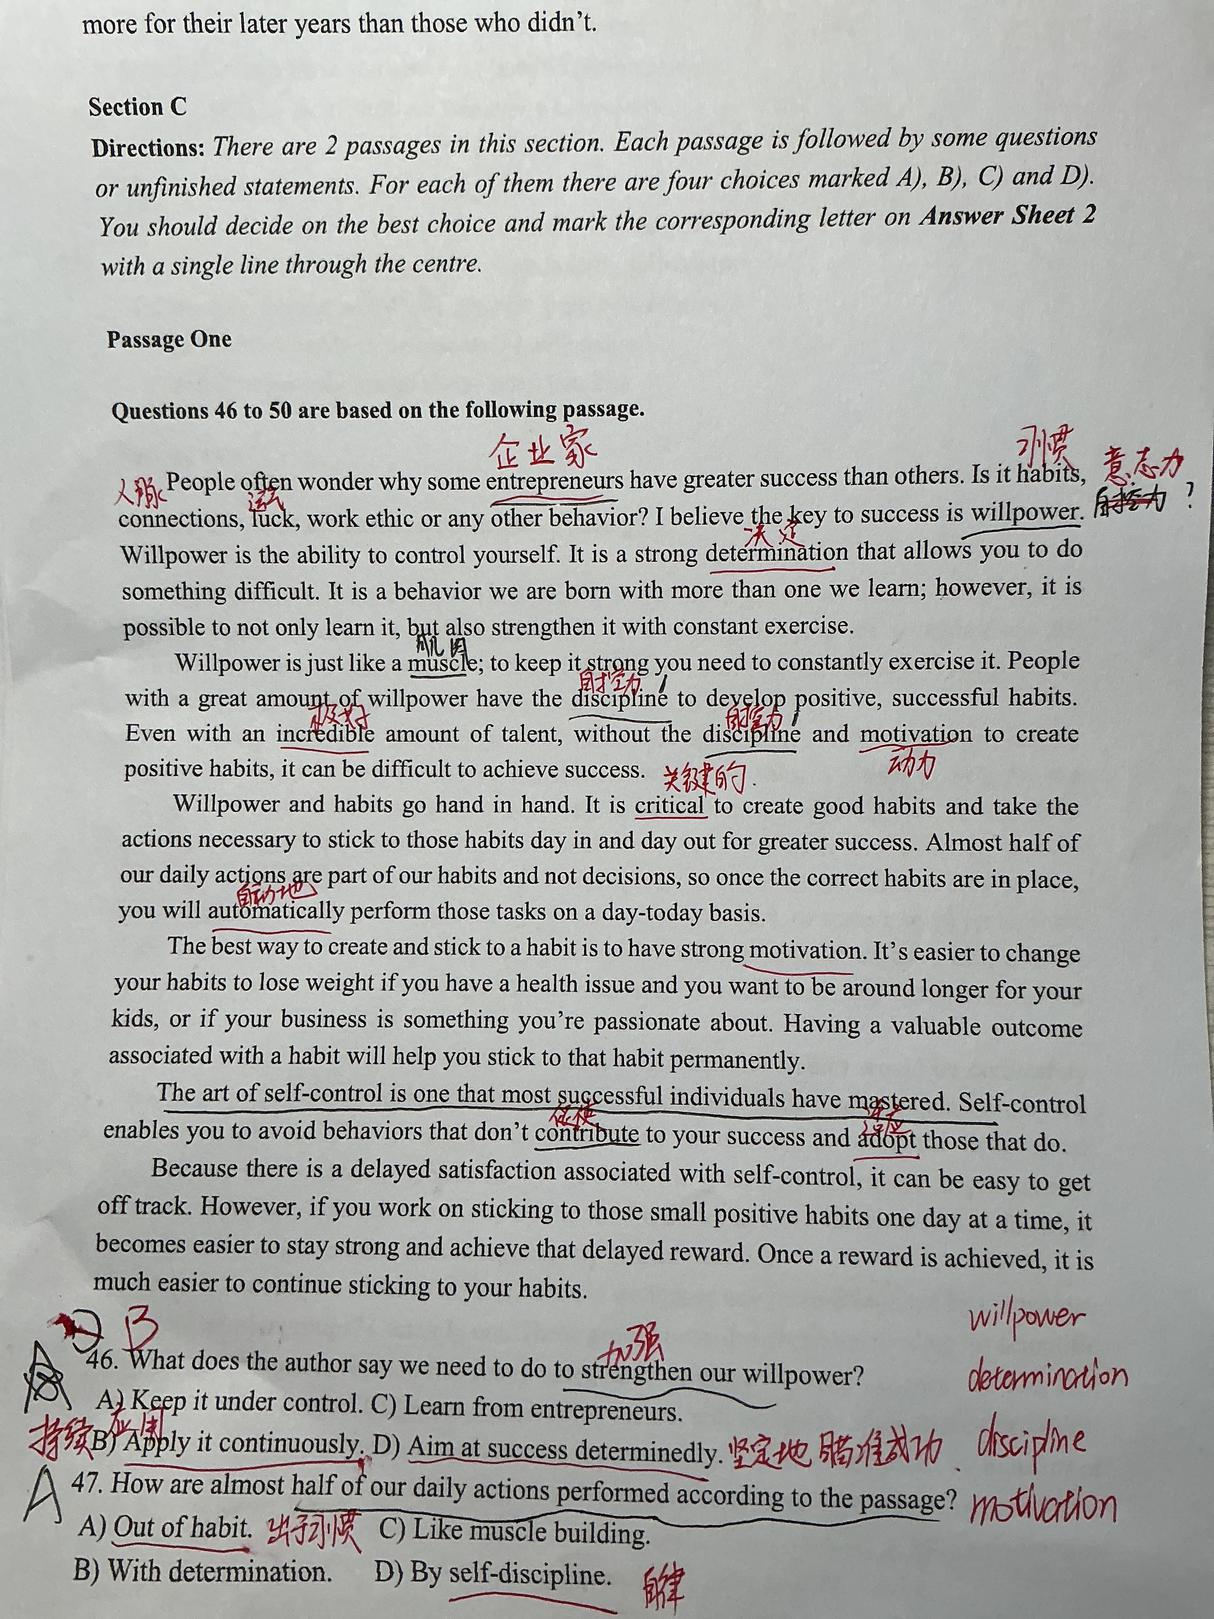 more for their later years than those who didn't.
Section C
Directions: There are 2 passages in this section. Each passage is followed by some questions
or unfinished statements. For each of them there are four choices marked A), B), C) and D).
You should decide on the best choice and mark the corresponding letter on Answer Sheet 2
with a single line through the centre.
Passage One
Questions 46 to 50 are based on the following passage.
企业家 习惯
人脉 People often wonder why some entrepreneurs have greater success than others. Is it habits, 意志力
运气
connections, luck, work ethic or any other behavior? I believe the key to success is willpower. 自控力?
决定
Willpower is the ability to control yourself. It is a strong determination that allows you to do
something difficult. It is a behavior we are born with more than one we learn; however, it is
possible to not only learn it, but also strengthen it with constant exercise.
肌肉
Willpower is just like a muscle; to keep it strong you need to constantly exercise it. People
自控力
with a great amount of willpower have the discipline to develop positive, successful habits.
极好 自控力
Even with an incredible amount of talent, without the discipline and motivation to create
动力
positive habits, it can be difficult to achieve success. 关键的.
Willpower and habits go hand in hand. It is critical to create good habits and take the
actions necessary to stick to those habits day in and day out for greater success. Almost half of
our daily actions are part of our habits and not decisions, so once the correct habits are in place,
自动地
you will automatically perform those tasks on a day-today basis.
The best way to create and stick to a habit is to have strong motivation. It's easier to change
your habits to lose weight if you have a health issue and you want to be around longer for your
kids, or if your business is something you're passionate about. Having a valuable outcome
associated with a habit will help you stick to that habit permanently.
The art of self-control is one that most successful individuals have mastered. Self-control
促使
enables you to avoid behaviors that don't contribute to your success and adopt those that do.
Because there is a delayed satisfaction associated with self-control, it can be easy to get
off track. However, if you work on sticking to those small positive habits one day at a time, it
becomes easier to stay strong and achieve that delayed reward. Once a reward is achieved, it is
much easier to continue sticking to your habits.
B willpower
加强
46. What does the author say we need to do to strengthen our willpower?
determination
A) Keep it under control. C) Learn from entrepreneurs.
持续 应用
B) Apply it continuously. D) Aim at success determinedly. 坚定地 瞄准成功 discipline
A 47. How are almost half of our daily actions performed according to the passage? motivation
A) Out of habit. 出于习惯 C) Like muscle building.
B) With determination. D) By self-discipline. 自律